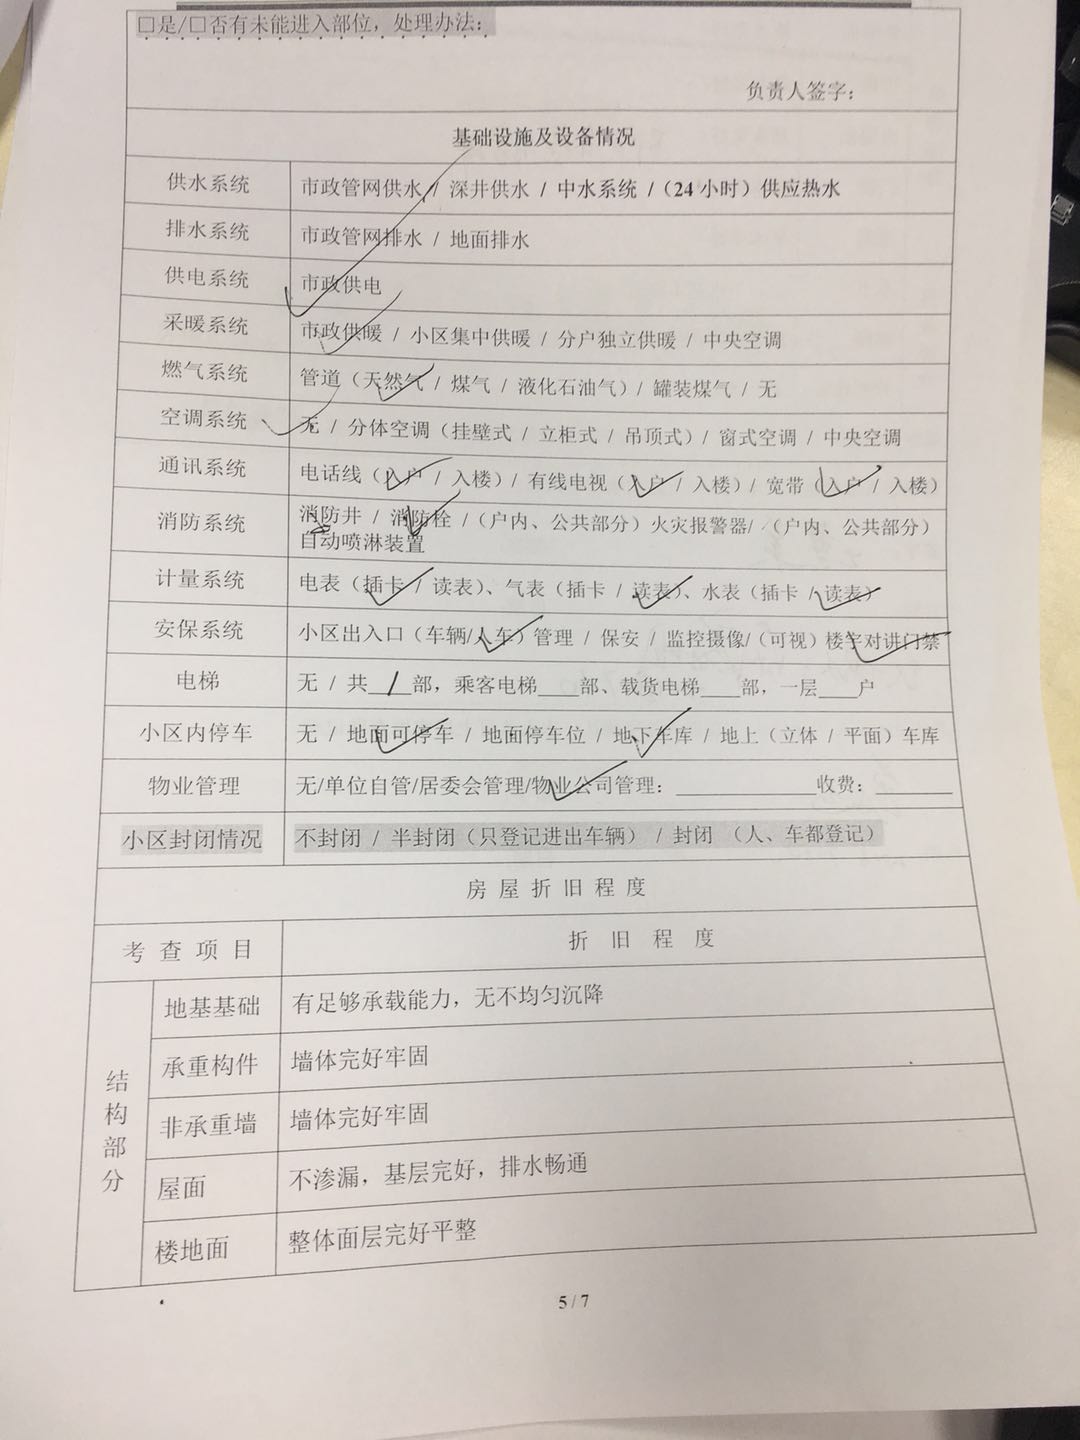 □是/□否有未能进入部位，处理办法：
负责人签字：
基础设施及设备情况
供水系统 市政管网供水 / 深井供水 / 中水系统 /（24 小时）供应热水
排水系统 市政管网排水 / 地面排水
供电系统 市政供电
采暖系统 市政供暖 / 小区集中供暖 / 分户独立供暖 / 中央空调
燃气系统 管道（天然气 / 煤气 / 液化石油气）/ 罐装煤气 / 无
空调系统 无 / 分体空调（挂壁式 / 立柜式 / 吊顶式）/ 窗式空调 / 中央空调
通讯系统 电话线（入户 / 入楼）/ 有线电视（入户 / 入楼）/ 宽带（入户 / 入楼）
消防系统 消防井 / 消防栓 /（户内、公共部分）火灾报警器/（户内、公共部分）
自动喷淋装置
计量系统 电表（插卡 / 读表）、气表（插卡 / 读表）、水表（插卡 / 读表）
安保系统 小区出入口（车辆/人车）管理 / 保安 / 监控摄像/（可视）楼宇对讲门禁
电梯 无 / 共 1 部，乘客电梯____部、载货电梯____部，一层____户
小区内停车 无 / 地面可停车 / 地面停车位 / 地下车库 / 地上（立体 / 平面）车库
物业管理 无/单位自管/居委会管理/物业公司管理：______________收费：________
小区封闭情况 不封闭 / 半封闭（只登记进出车辆） / 封闭 （人、车都登记）
房屋折旧程度
考查项目 折旧程度
结构部分
地基基础 有足够承载能力，无不均匀沉降
承重构件 墙体完好牢固
非承重墙 墙体完好牢固
屋面 不渗漏，基层完好，排水畅通
楼地面 整体面层完好平整
5 / 7